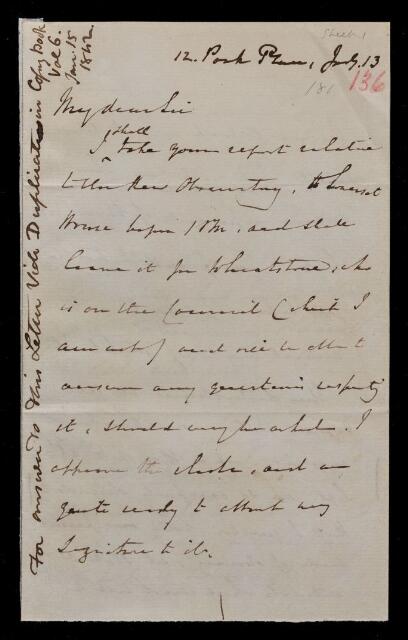 Sheet 1
12. Park Place, Jan.y. 13
181
136
My dear Sir
I shall take your report relative
to the Kew Observatory, to Somerset
House before 1 P.M. and shall
leave it for Wheatstone, who
is on the Council (which I
am not) and will be able to
answer any questions respecting
it, should any be asked. I
approve the whole, and am
quite ready to attach my
Signature to it.
For answer to this Letter Vide Duplicate in Copy book
Vol 6.
Jan. 15
1842.